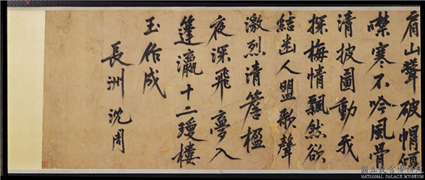 肩山聳破帽傾
噤寒不吟風骨
清披圖動我
探梅情飄然欲
結歲人盟歌聲
激烈清簷楹
夜深飛夢入
蓬瀛十二瓊樓
玉作成
長洲沈周
NATIONAL PALACE MUSEUM